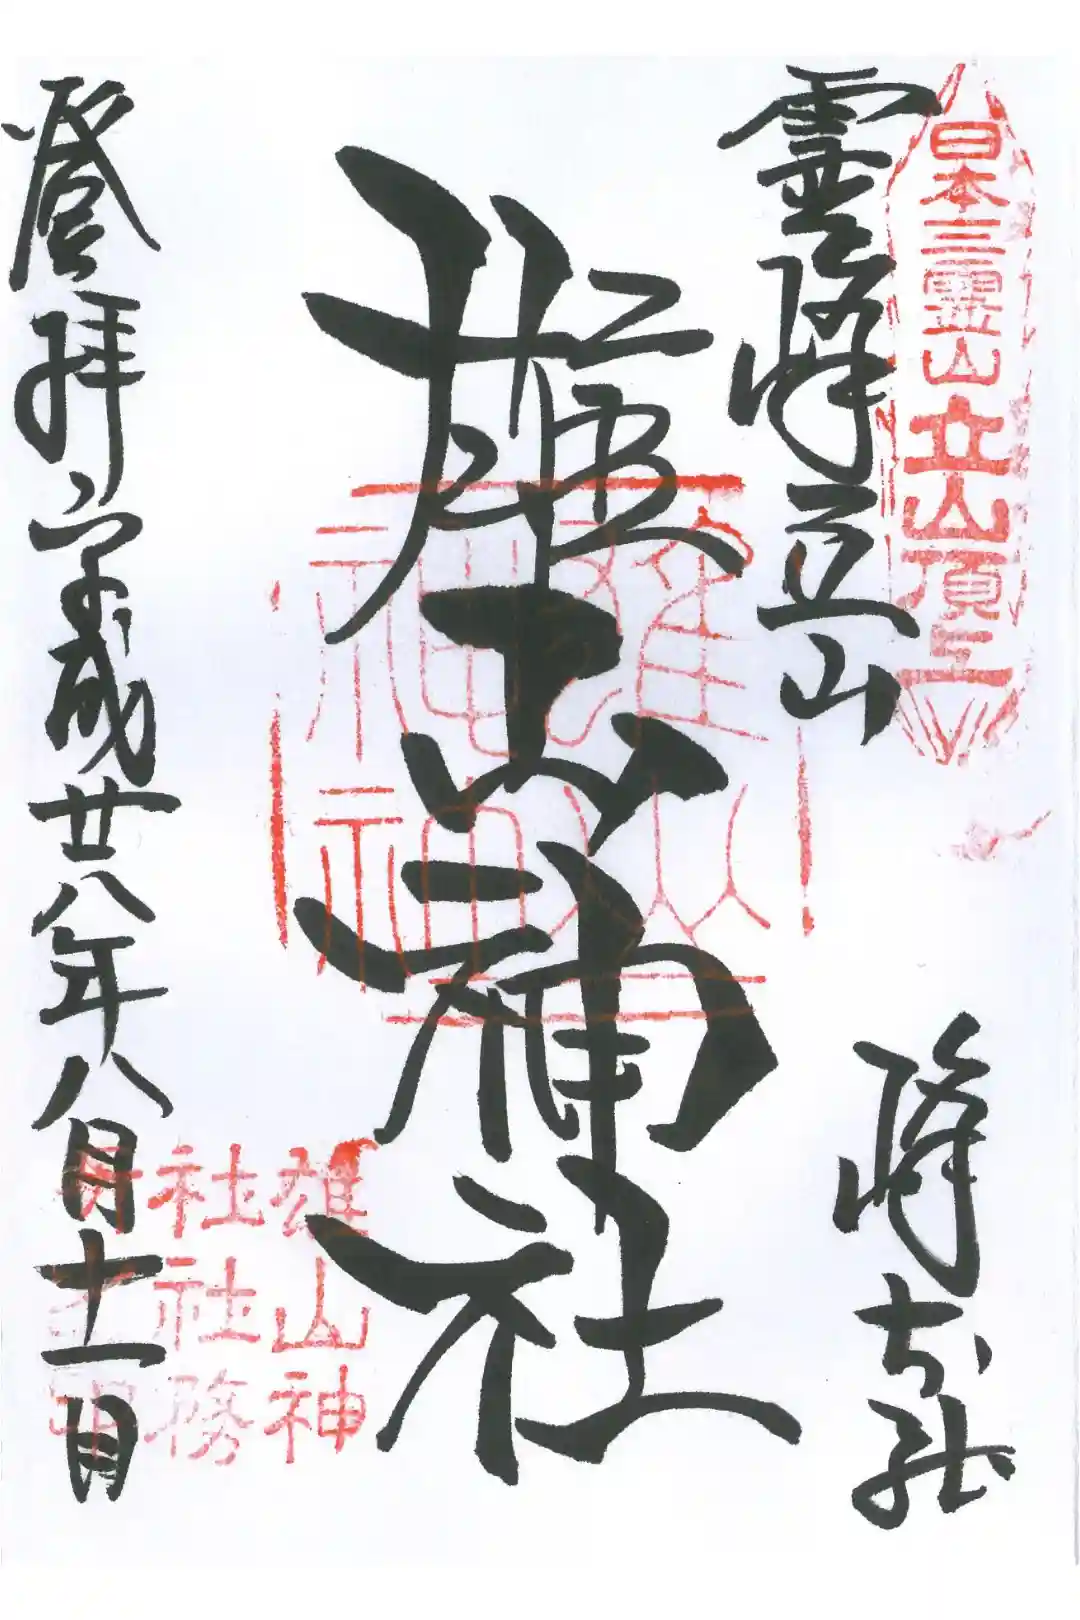 日本三霊山立山頂上
霊峰立山
峰本社
雄山神社
登拝 平成廿八年八月十一日
雄山神
社社務